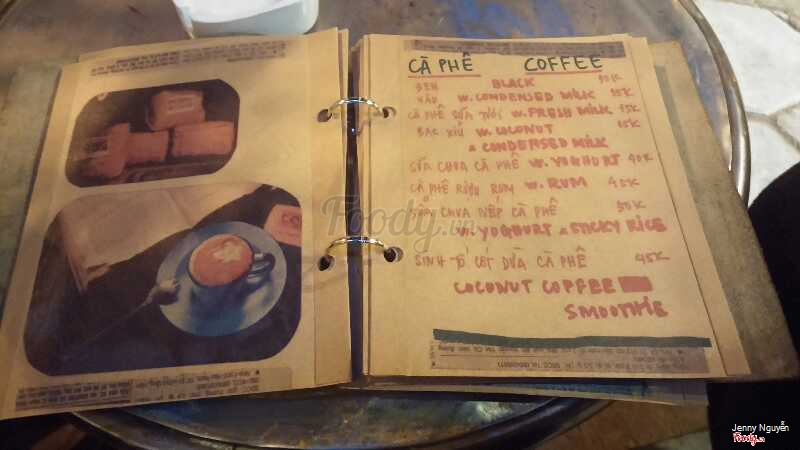 CÀ PHÊ COFFEE
ĐEN BLACK
NÂU W. CONDENSED MILK 35K
CÀ PHÊ SỮA TƯƠI W. FRESH MILK 45K
BẠC XỈU W. COCONUT 45K
& CONDENSED MILK
SỮA CHUA CÀ PHÊ W. YOGHURT 40K
CÀ PHÊ RƯỢU RUM W. RUM 45K
SỮA CHUA NẾP CÀ PHÊ 50K
W. YOGHURT & STICKY RICE
SINH TỐ CỐT DỪA CÀ PHÊ 45K
COCONUT COFFEE
SMOOTHIE
Foody.vn
Jenny Nguyễn
Foody.vn